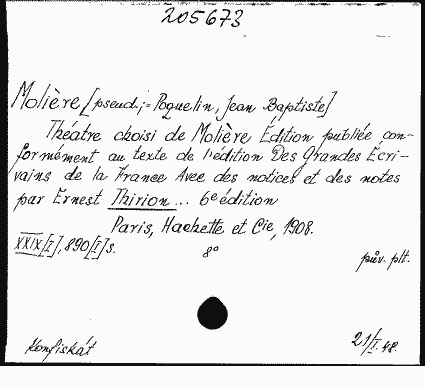 205673
Molière, [pseud.;= Poquelin, Jean Baptiste]
Théatre choisi de Molière Édition publiée con-
formément au texte de l'édition Des Grandes Écri-
vains de la France Avec des notices et des notes
par Ernest Thirion ... 6e édition
Paris, Hachette et Cie, 1908.
XXIX[I], 890[I] s. 8°
pův. plt.
Konfiskát
21/I.48.